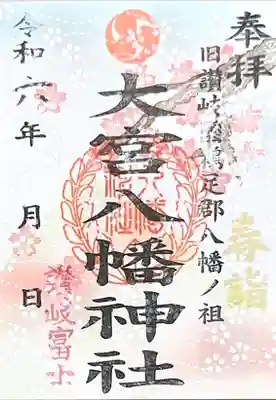 奉拝
旧讃岐國鵜足郡八幡ノ祖
春詣
大宮八幡神社
令和六年 月 日
讃岐富士